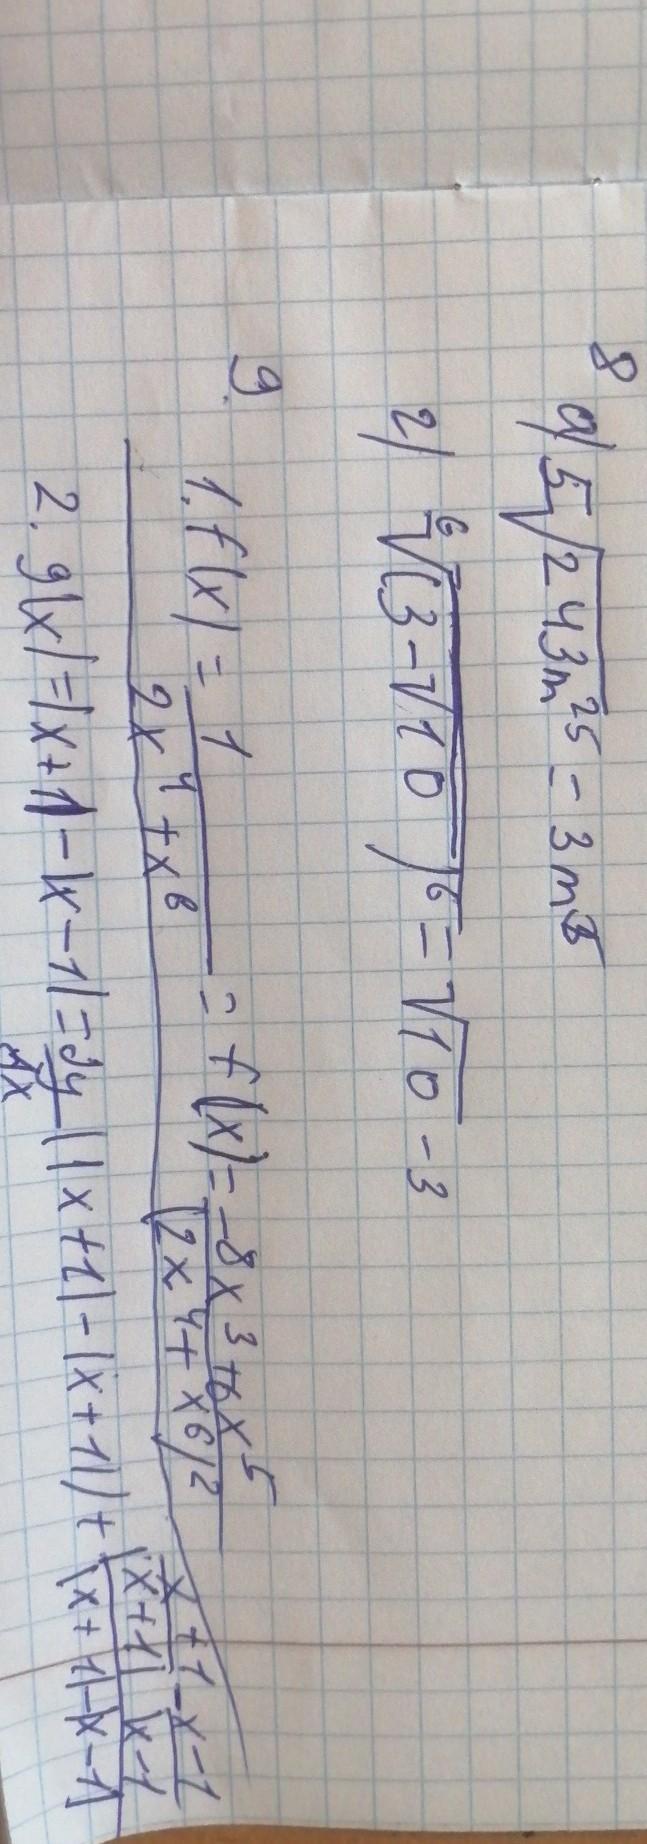 8 а) 5√243m²⁵ = 3m⁵
г) ⁶√(3-√10)⁶ = √10 - 3
9. 1. f(x) = 1/(2x⁴+x⁶) = f(x) = -8x³+6x⁵/(2x⁴+x⁶)²
2. g(x)=|x+1-|x-1|= dy/dx (|x+1|-|x+1|)+
x+1 - x-1
|x+1| |x-1
|x+1|-|x-1|